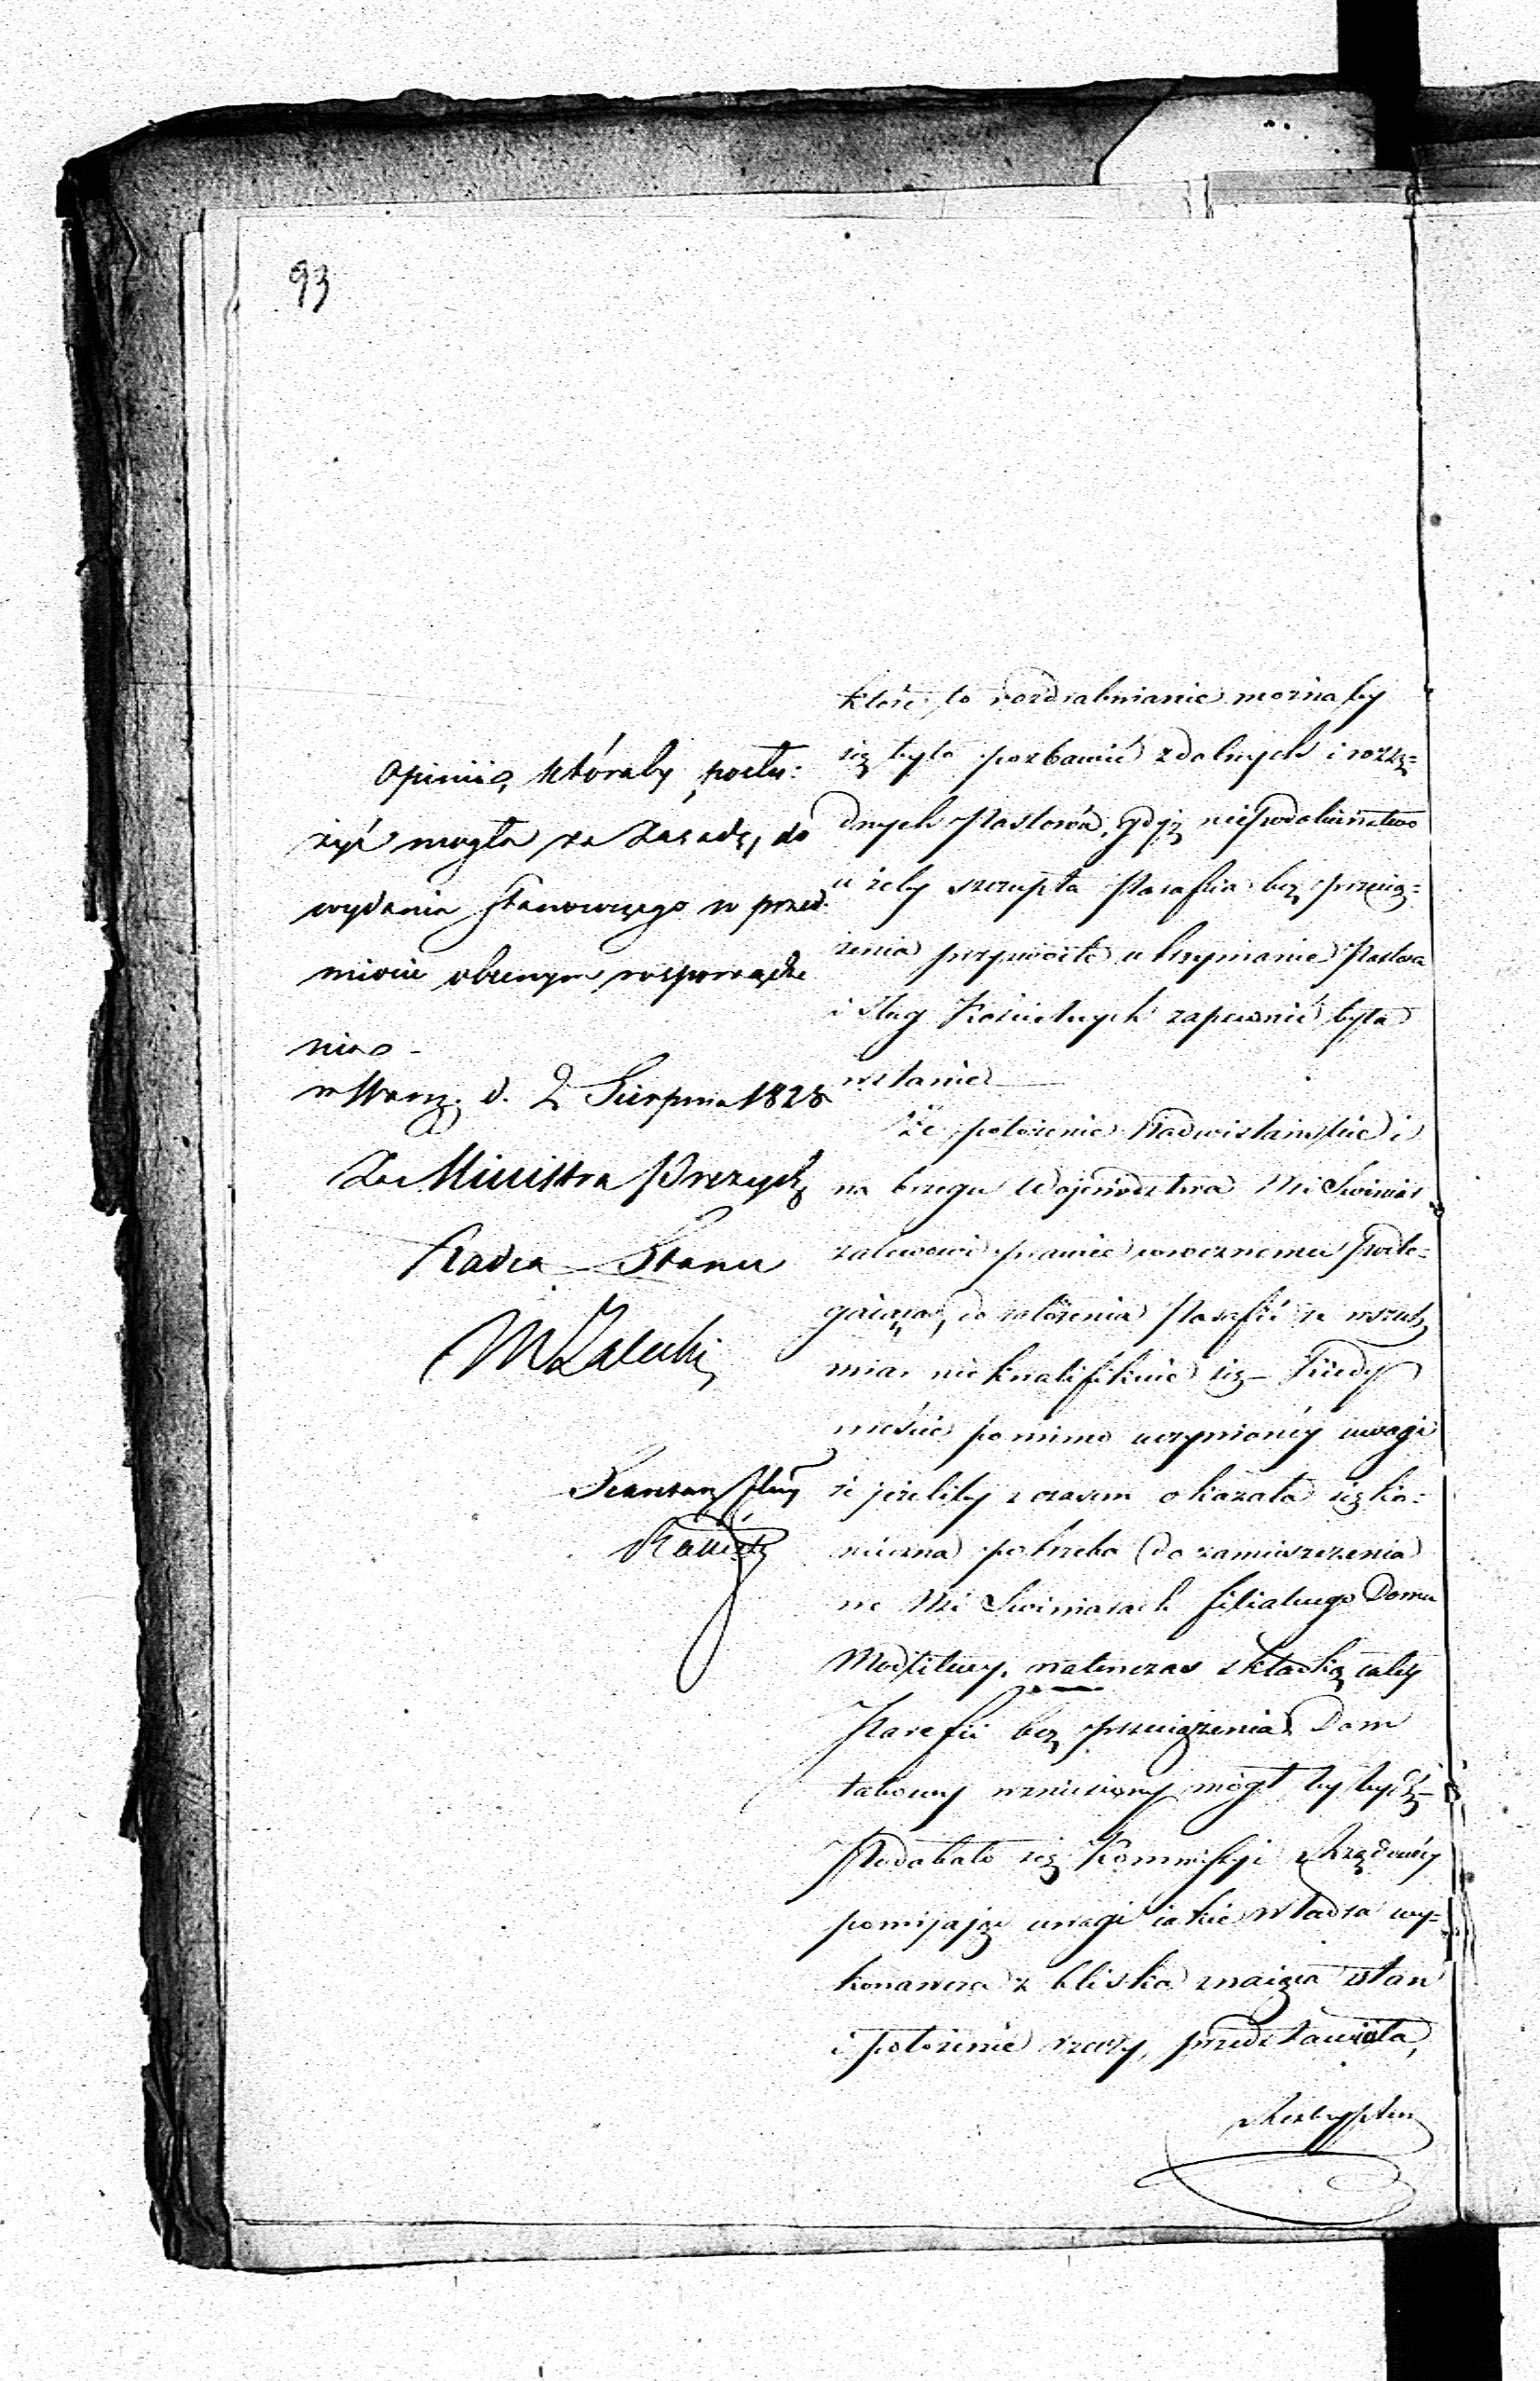 93
Opinią, któraby posłu:
żyć mogła za zasadę, do
wydania stanowczego w przed
miocie obecnym rosporządze
nia -
w Warsz. d. 2 Sierpnia 1828
Za Ministra Prezyd:
Radca Stanu
M Zaleski
które to rozdrabnianie możnaby
się było pozbawić zdolnych i rozsą=
dnych Pastorów, gdyż niepodobieństwo
a żeby szczupła Parafia bez przecią=
żenia przyzwoite utrzymanie Pastora
i sług Kościelnych zapewnić była
wstanie
Że położenie Nadwiślańskie i
na brzegu Województwa Wsi Świniar
zalewowi prawie corocznemu podle=
gaiące, do założenia Parafii ze wszech
miar nie kwalifikuie się - Kiedy
wreście pomimo uczynionéy uwagi
iż jeżeliby z czasem okazała się ko=
nieczna potrzeba do zamieszczenia
we Wsi Świniarach filialnego Domu
Modlitwy, natenczas składką całéy
Parafii bez przeciążenia Dom
takowy wzniesiony mógł by bydź -
Podobało się Kommissyi Rządowéy
pomijając uwagi iakie Władza wy=
konawcza z bliska znaiąca stan
i położenie rzeczy, przedstawiła,